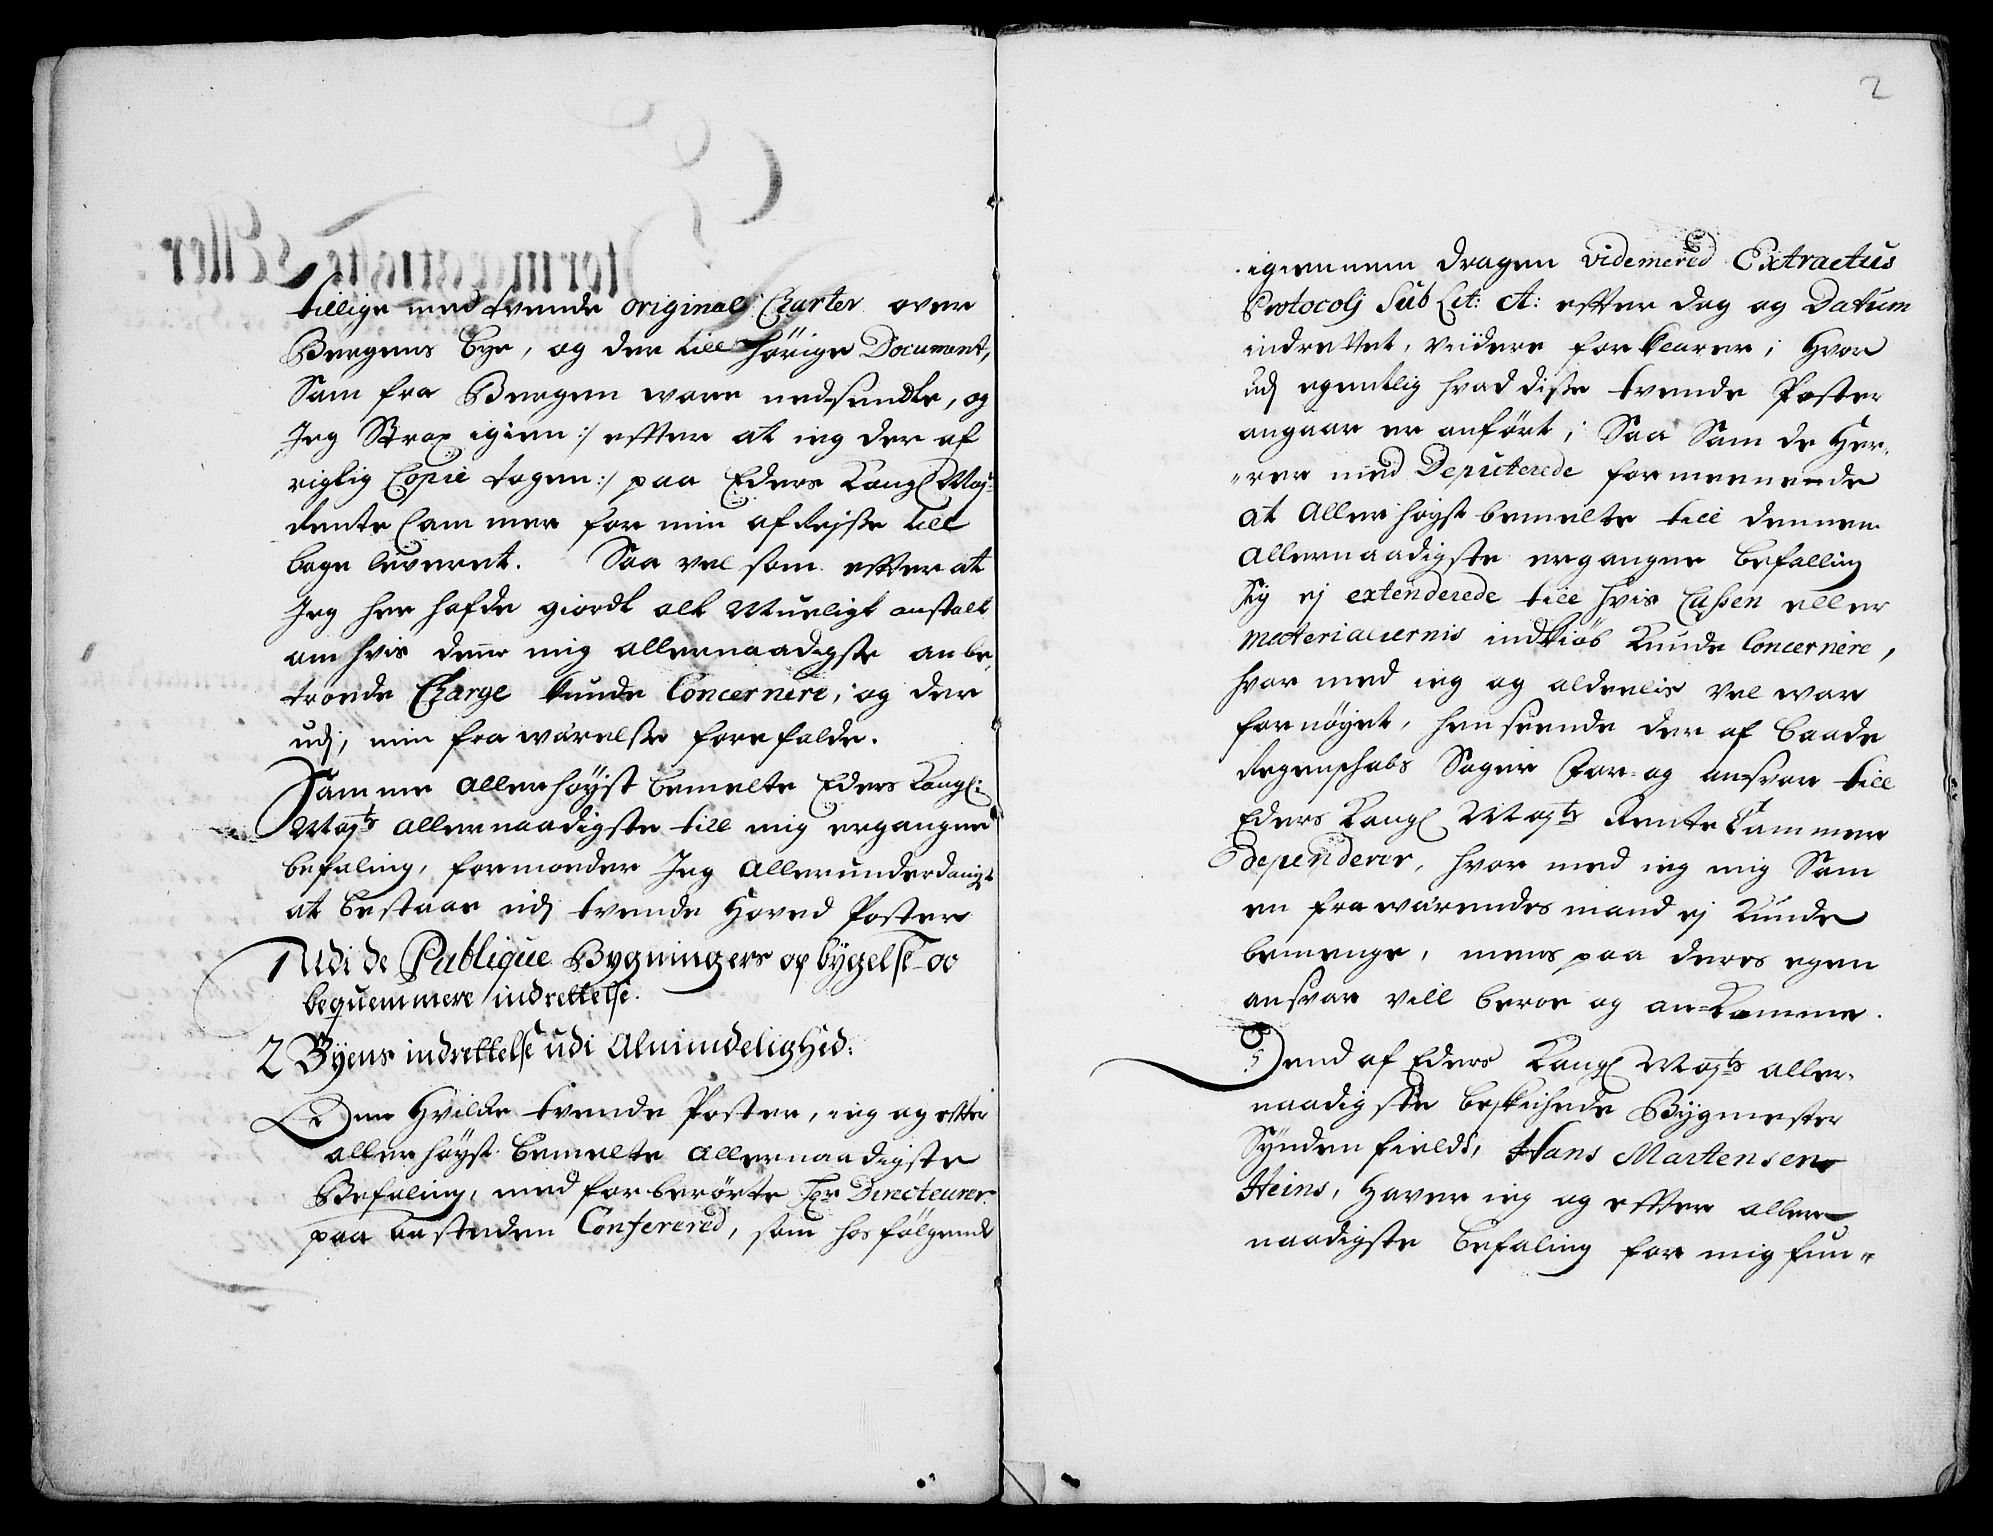 tillige med tvende original Charter over
Bergens bye, og der till hörige Document,
Som fra Bergen ware nedsendte, og
Jeg Strax igien :/ effter at ieg der af
rigtig Copie tagen :/ paa Eders Kongl Maj:
Rente Cammer for min afReisse till
bage leveret. Saa vel som effter at
Jeg her hafde giordt alt Mueligt anstalt
om hvis denne mig allernaadigste anbe„
troede Charge kunde Concernere, og der
udj, min fra wærelsse forefalde.
Samme Allerhöyst bemelte Eders Kongl:
Majts allernaadigste till mig ergangne
befaling, formoeder Jeg Allerunderdanigst
at bestaar udj tvende Hoved Poster
1 Udi de Publique Bygningers op bygelse oc
bequemmere indrettelse.
2 Byens indrettelse udi Almindelighed:
Om Hvilke tvende Poster, ieg og effter
allerhöyst bemelte Allernaadigste
Befaling, med forberörte Hr Directeurer
paa aastæden Confererred, som hosfölgende
2
igiennem dragen videmered Extractus
Protocolj Sub Lit: A: effter dag og Datum
indrettet, viidere forklarer; Hvor
udj egentlig hvad disse tvende Poster
angaar er anfört; Saa Som de Her„
„rer med Deputerede formeenede
at Aller höyst bemelte till dennem
Allernaadigste ergangne befalling
sig ej extenderede till hvis Cassen eller
Materialiernis indkiöb kunde Concernere,
hvor med ieg og aldelis vel war
fornöyet, henseende der af baade
Regenschabs Sager For= og ansvar till
Eders Kongl Majts Rente Cammer
dependerer, hvor med ieg mig Som
en fra wærendes mand ej kunde
bemenge, mens paa deres egen
ansvar vill beroe og an=komme.
Dend af Eders Kongl Majts aller„
naadigste beskichede Bÿgmester
Sÿndenfields, Hans Martensen
Heins, Haver ieg og effter aller
naadigste befaling for mig fun„